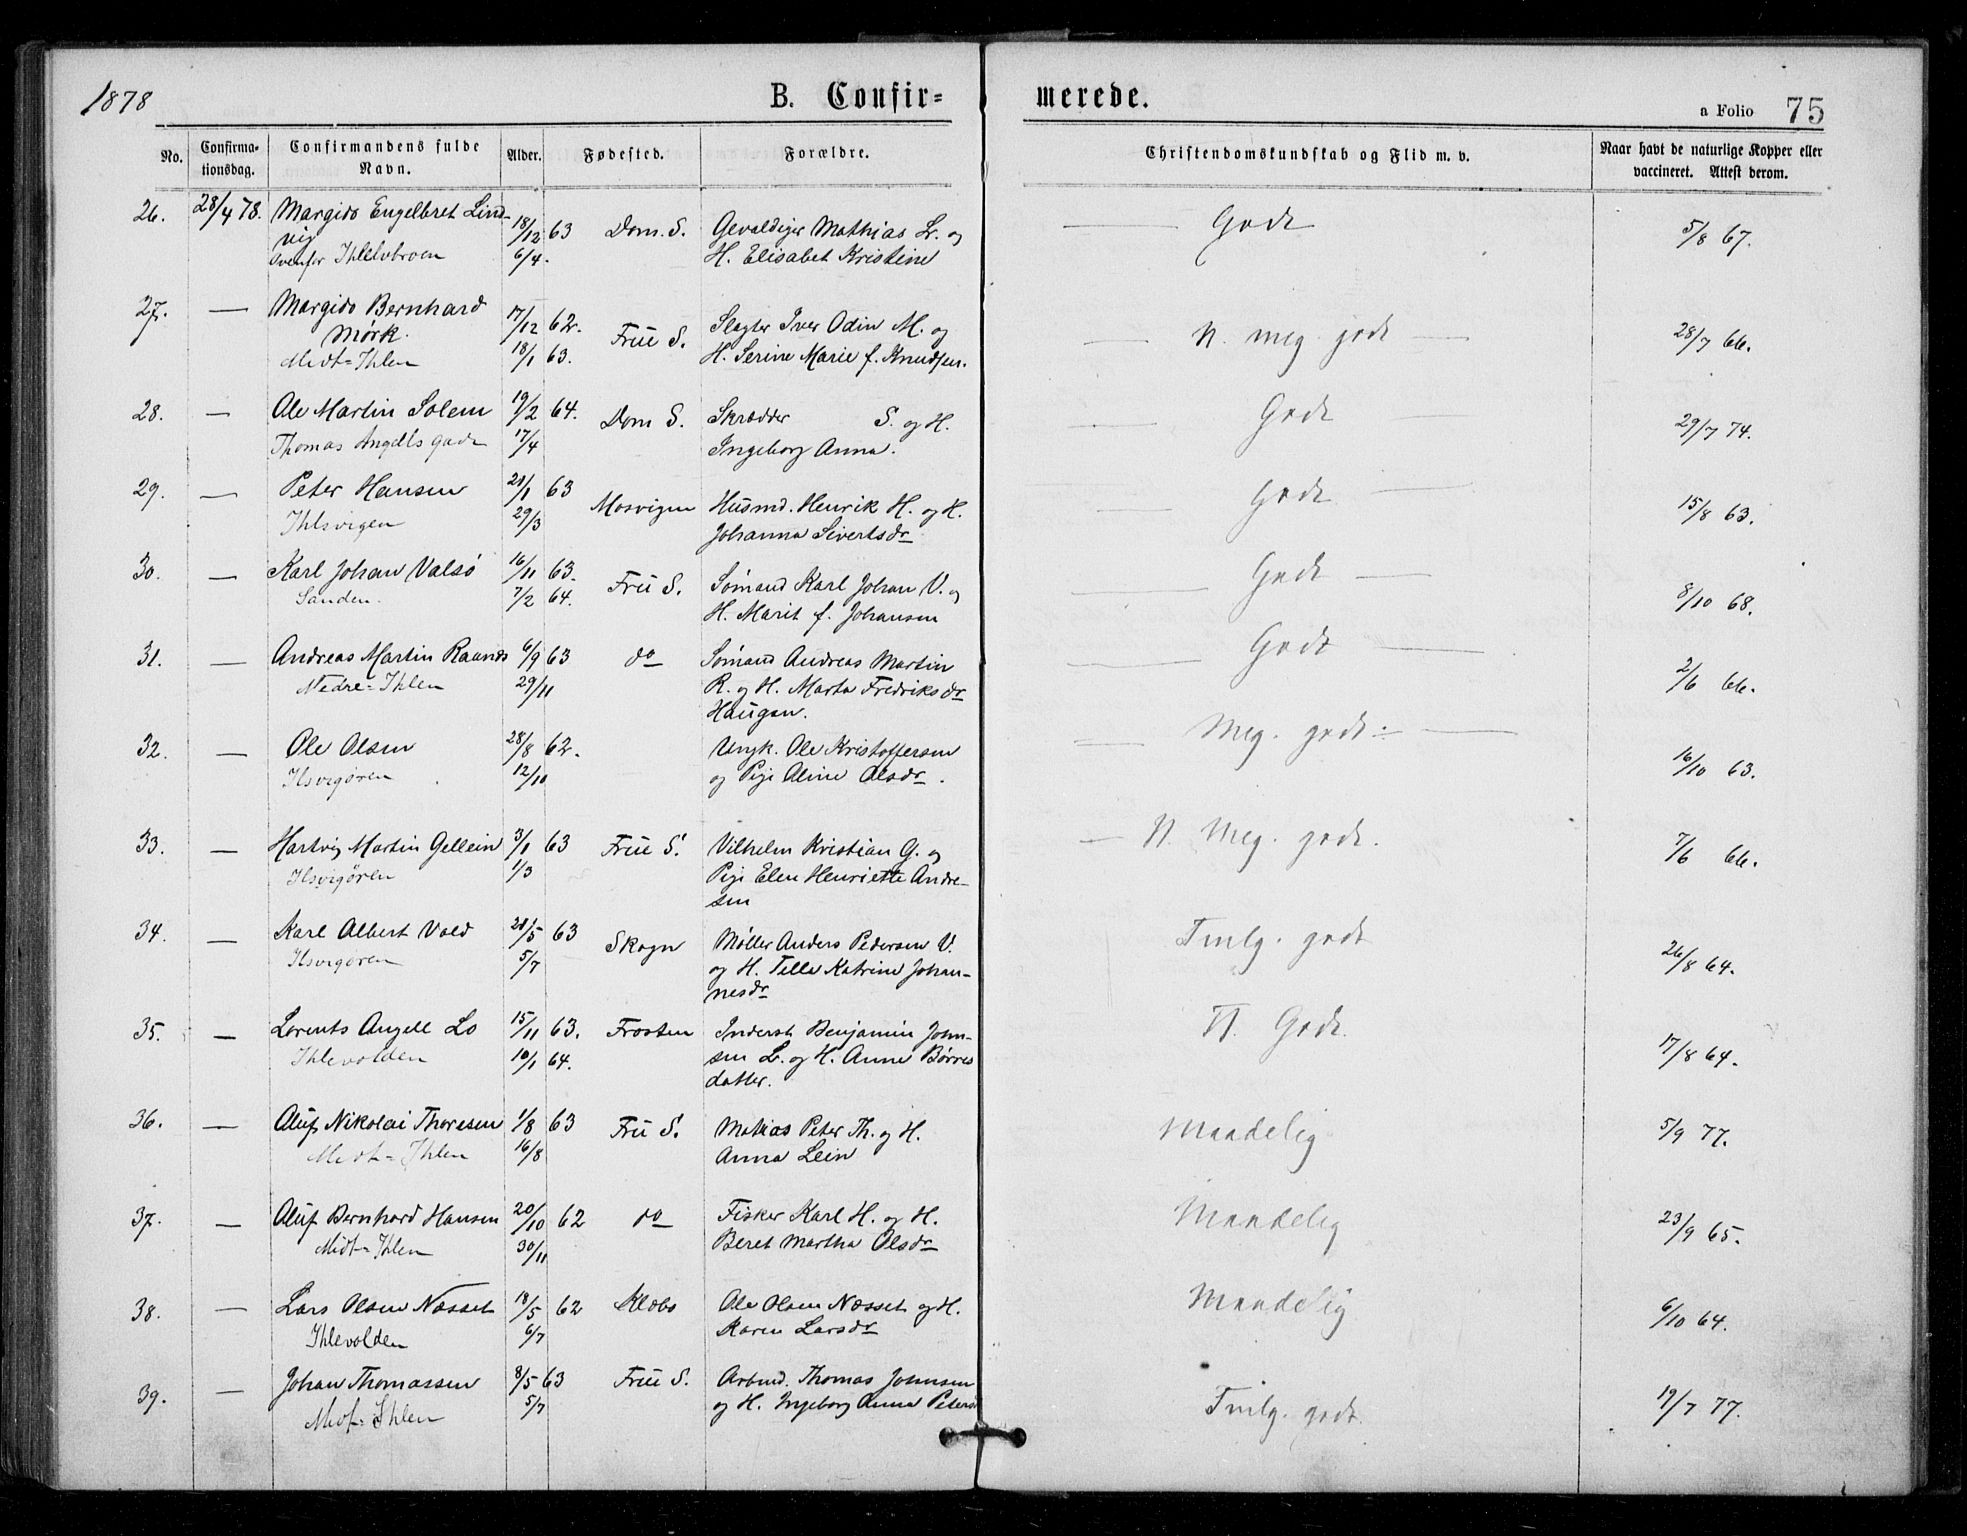 1878 B. Confir= merede. a Folio 75
No. Confirma-tionsdag. Confirmandens fulde Navn. Alder. Fødested. Forældre. Christendomskundskab og Flid m. v. Naar havt de naturlige Kopper eller vaccineret. Attest derom.
26. 28/4 78. Margido Engelbret Lind- 18/12 63 Dom. S. Gevaldiger Mathias L. og Godt 5/8 67.
vig 6/4. H. Elisabet Kristine
ovenfor Ihlelvbroen
27. — Margido Bernhard 17/12 62. Frue S. Slagter Iver Odin M. og N. meg. godt 28/7 66.
Mørk. 18/1 63. H. Serine Marie f. Knudsen.
Midt=Ihlen
28. — Ole Martin Solem 19/2 64. Dom S. Skrædder S. og H. Godt 29/7 74.
Thomas Angells gade 17/4 Ingeborg Anna.
29. — Peter Hansen 20/1 63 Mosvigen Husmd. Henrik H. og H. Godt 15/8 63.
Ihlsvigen 29/3 Johanna Sivertsdr
30. — Karl Johan Valsø 16/11 63. Frü S. Sømand Karl Johan V. og Godt 8/10 68.
Sanden. 7/2 64. H. Marit f. Johansen
31. — Andreas Martin Raanes 6/9 63 do Sømand Andreas Martin Godt 2/6 66.
Nedre=Ihlen 29/11 R. og H. Marta Fredriksdr
Haugan.
32. — Ole Olsen 28/8 62. Ungk. Ole Kristoffersen Meg. godt 16/10 63.
Ilsvigøren 12/10 og Pige Oline Olsdr.
33. — Hartvig Martin Gellein 3/1 63 Frue S. Vilhelm Kristian G. og N. Meg. godt. 7/6 66.
Ilsvigøren 1/3 Pige Elen Henriette Andre-
sen
34. — Karl Albert Vold 20/5 63 Skogn Møller Anders Pedersen V. Tmlg. godt 26/8 64.
Ilsvigøren 5/7 og H. Katrine Johan-
nesdr
35. — Lorents Angell Lo 15/11 63. Frosten Inderst Benjamin John- N. Godt. 17/8 64.
Ihlevolden 10/1 64. sen L. og H. Anne Børres
datter.
36. — Oluf Nikolai Thoresen 1/8 63 Frü S. Matias Peter Th. og H. Maadelig 5/9 77.
Midt=Ihlen 16/8 Anna Lein
37. — Oluf Bernhard Hansen 20/10 62 do Fisker Karl H. og H. Maadelig 23/9 65.
Midt=Ihlen 30/11 Beret Martha Olsdr
38. — Lars Olsen Næsset 18/5 62 Klæbo Ole Olsen Næsset og H. Maadelig 6/10 64.
Ihlevolden 6/7 Karen Larsdr
39. — Johan Thomassen 8/5 63 Frue S. Arbmd. Thomas Johnsen Tmlg. godt. 19/7 77.
Midt=Ihlen 5/7 og H. Ingeborg Anna